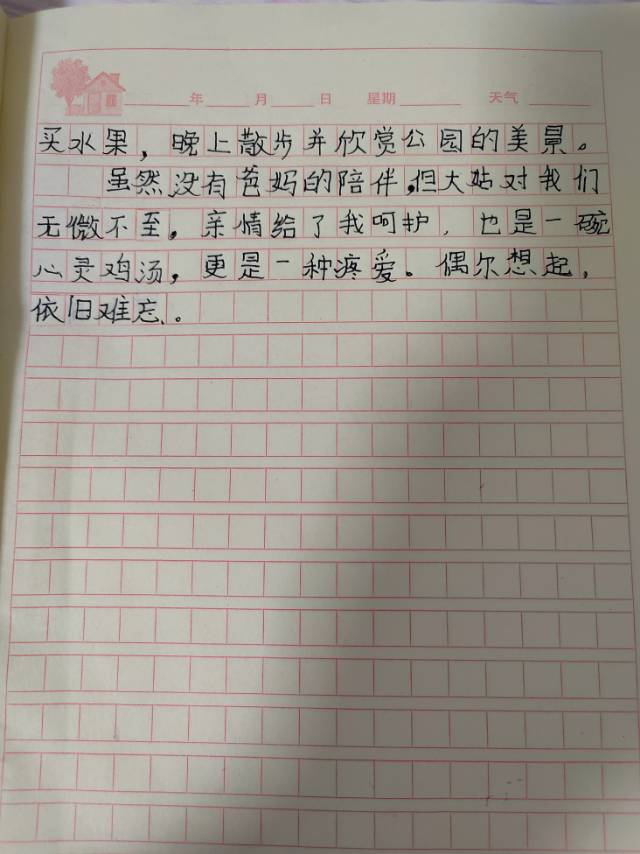 年 月 日 星期 天气
买水果，晚上散步并欣赏公园的美景。
虽然没有爸妈的陪伴，但大姑对我们
无微不至，亲情给了我呵护，也是一碗
心灵鸡汤，更是一种疼爱。偶尔想起，
依旧难忘。